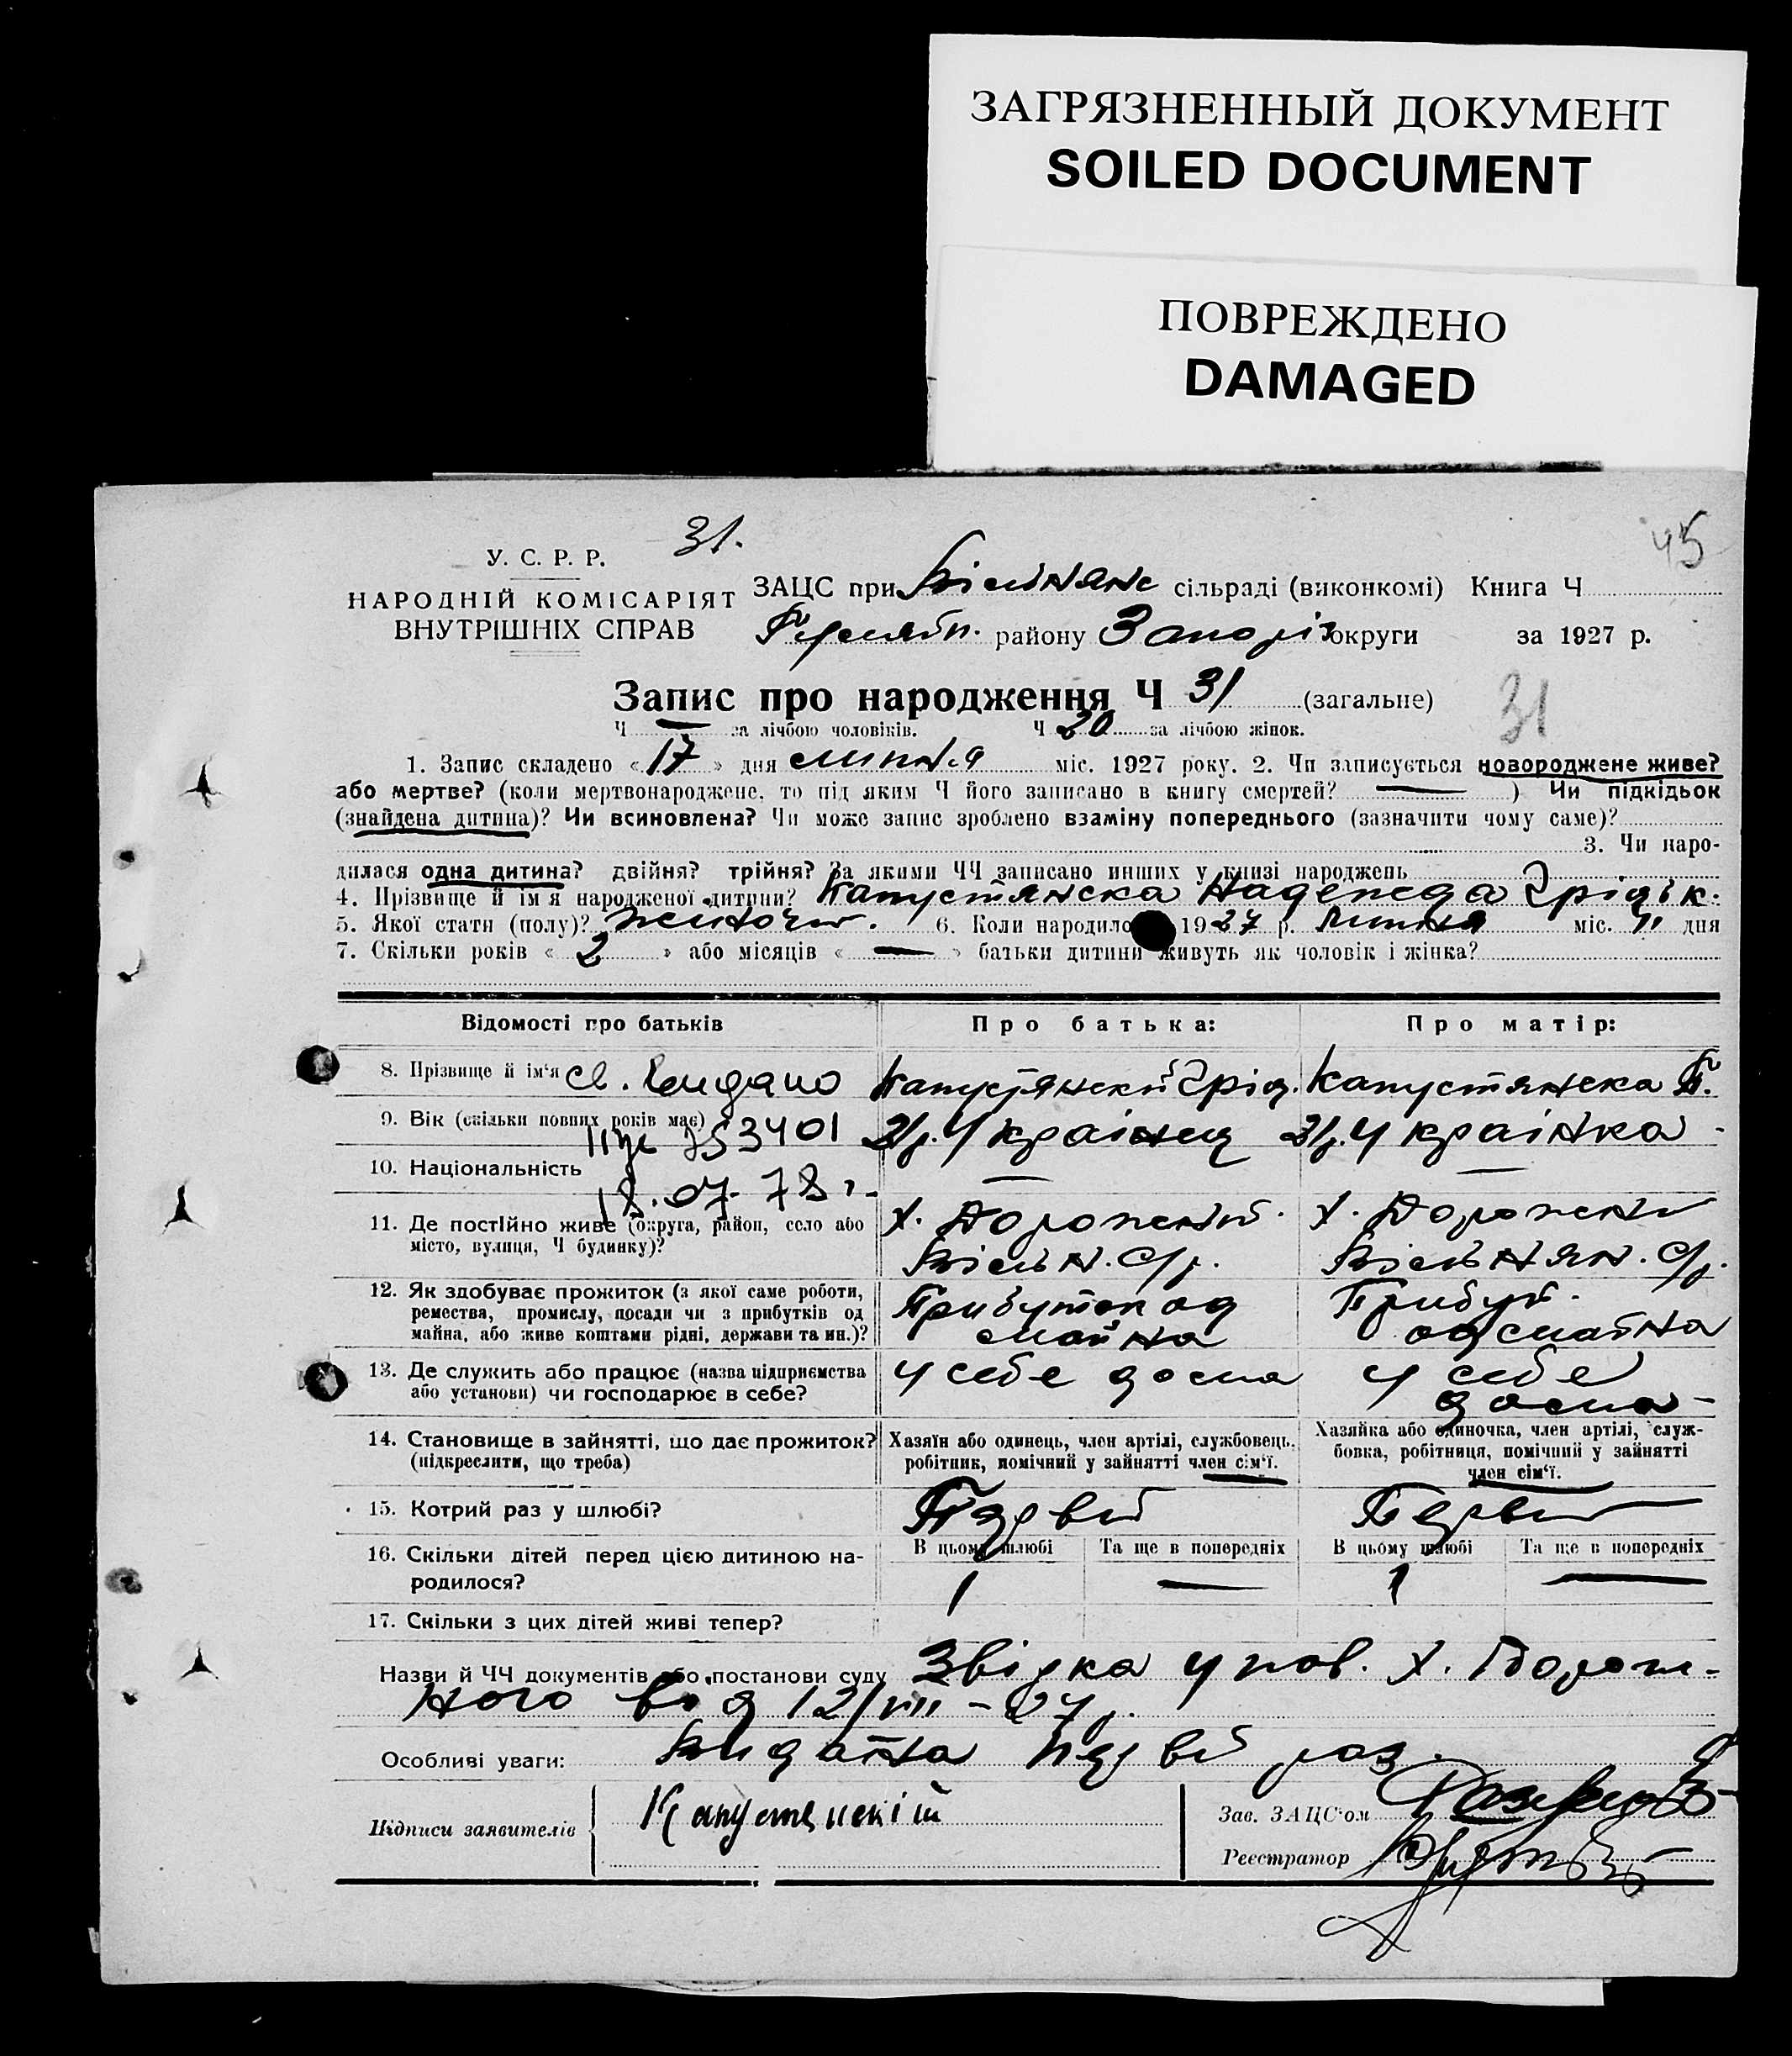 ЗАГРЯЗНЕННЫЙ ДОКУМЕНТ
SOILED DOCUMENT
ПОВРЕЖДЕНО
DAMAGED
31.
45
У. С. Р. Р.
НАРОДНІЙ КОМІСАРІЯТ
ВНУТРІШНІХ СПРАВ
ЗАЦС при Вільнянс сільраді (виконкомі) Книга Ч
району Запоріз округи за 1927 р.
Запис про народження Ч 31 (загальне)
31
Ч — за лічбою чоловіків. Ч 20 за лічбою жінок.
1. Запис складено « 17 » дня липня міс. 1927 року. 2. Чи записується новороджене живе?
або мертве? (коли мертвонароджене, то під яким Ч його записано в книгу смертей? — ) Чи підкідьок
(знайдена дитина)? Чи всиновлена? Чи може запис зроблено взаміну попереднього (зазначити чому саме)?
3. Чи наро-
дилася одна дитина? двійня? трійня? За якими ЧЧ записано инших у книзі народжень
4. Прізвище й ім'я народженої дитини? Капустянска Надежда Грідік.
5. Якої стати (полу)? жіночи. 6. Коли народило 1927 р. липня міс. 11 дня
7. Скільки років « 2 » або місяців « — » батьки дитини живуть як чоловік і жінка?
Відомості про батьків
Про батька:
Про матір:
8. Прізвище й ім'я
св. видано
Капустянский Грід.
Капустянска П.
9. Вік (скільки повних років має)
353401
21р. Українец
21р. Українка
10. Національність
18.07.78 г.
—
—
11. Де постійно живе (округа, район, село або
місто, вулиця, Ч будинку)?
х. Дорожний
Вільн. с/р.
х. Дорожни
Вільнян. с/р.
12. Як здобуває прожиток (з якої саме роботи,
ремества, промислу, посади чи з прибутків од
майна, або живе коштами рідні, держави та ин.)?
Прибуток од
майна
Прибут.
од майна
13. Де служить або працює (назва підприємства
або установи) чи господарює в себе?
у себе дома
у себе
дома
14. Становище в зайнятті, що дає прожиток?
(підкреслити, що треба)
Хазяїн або одинець, член артілі, службовець,
робітник, помічний у зайнятті член сім'ї.
Хазяйка або одиночка, член артілі, служ-
бовка, робітниця, помічний у зайнятті
член сім'ї.
15. Котрий раз у шлюбі?
Первый
Первы
16. Скільки дітей перед цією дитиною на-
родилося?
В цьому шлюбі
Та ще в попередніх
В цьому шлюбі
Та ще в попередніх
1
—
1
—
17. Скільки з цих дітей живі тепер?
Назви й ЧЧ документів або постанови суду Звідка упов. х. Дорож-
ного вод 12/VII – 27 р.
Особливі уваги: Видана первій раз.
Підписи заявителів
Капустянскій
Зав. ЗАЦС'ом
Реєстратор